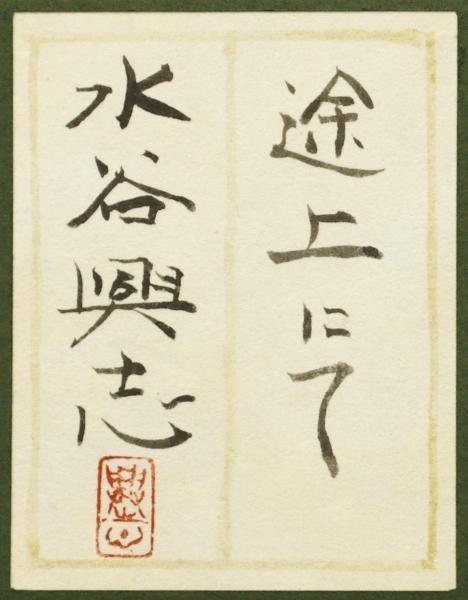 途上にて
水谷興志